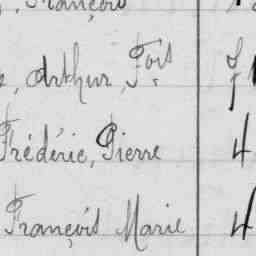 François
Arthur, Toit
Frédéric, Pierre 4
François Marie 4